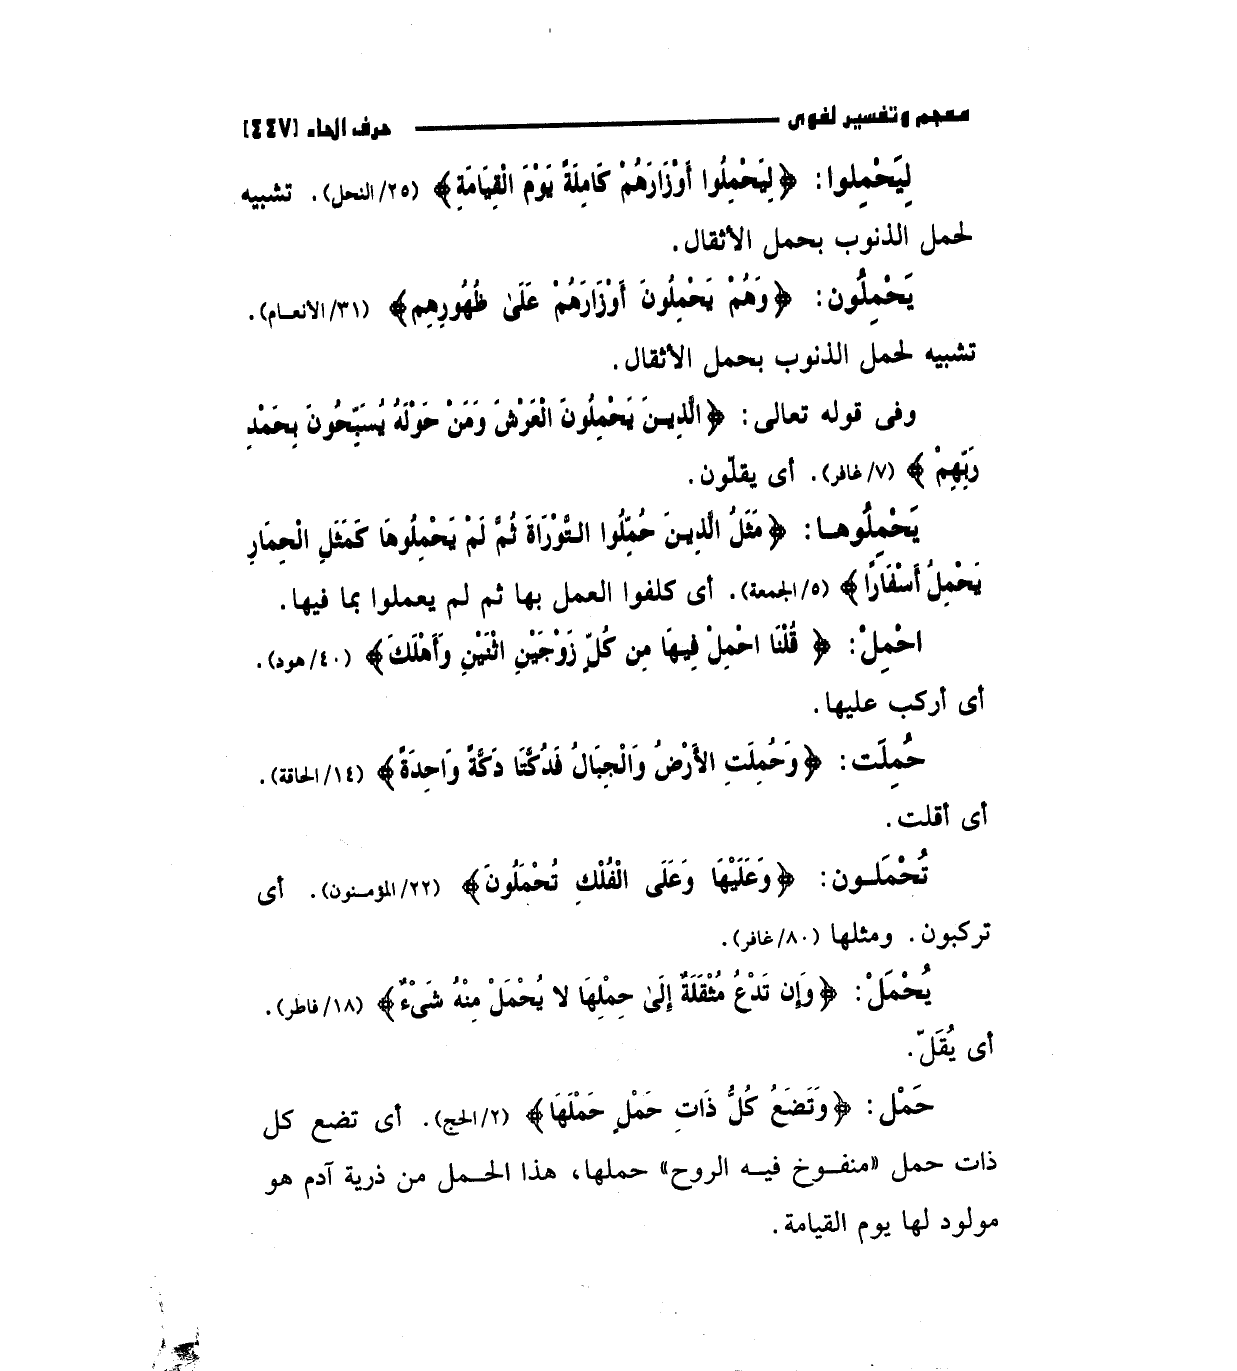 معجم وتفسير لغوى حرف الحاء [٤٤٧]
لِيَحْمِلوا: ﴿لِيَحْمِلُوا أَوْزَارَهُمْ كَامِلَةً يَوْمَ الْقِيَامَةِ﴾ (٢٥/النحل). تشبيه
لحمل الذنوب بحمل الأثقال.
يَحْمِلُون: ﴿وَهُمْ يَحْمِلُونَ أَوْزَارَهُمْ عَلَىٰ ظُهُورِهِم﴾ (٣١/الأنعام).
تشبيه لحمل الذنوب بحمل الأثقال.
وفى قوله تعالى: ﴿الَّذِينَ يَحْمِلُونَ الْعَرْشَ وَمَنْ حَوْلَهُ يُسَبِّحُونَ بِحَمْدِ
رَبِّهِمْ﴾ (٧/غافر). أى يقلّون.
يَحْمِلُوها: ﴿مَثَلُ الَّذِينَ حُمِّلُوا التَّوْرَاةَ ثُمَّ لَمْ يَحْمِلُوهَا كَمَثَلِ الْحِمَارِ
يَحْمِلُ أَسْفَارًا﴾ (٥/الجمعة). أى كلفوا العمل بها ثم لم يعملوا بما فيها.
احْمِلْ: ﴿قُلْنَا احْمِلْ فِيهَا مِن كُلٍّ زَوْجَيْنِ اثْنَيْنِ وَأَهْلَكَ﴾ (٤٠/هود).
أى أركب عليها.
حُمِلَت: ﴿وَحُمِلَتِ الأَرْضُ وَالْجِبَالُ فَدُكَّتَا دَكَّةً وَاحِدَةً﴾ (١٤/الحاقة).
أى أقلت.
تُحْمَلون: ﴿وَعَلَيْهَا وَعَلَى الْفُلْكِ تُحْمَلُونَ﴾ (٢٢/المؤمنون). أى
تركبون. ومثلها (٨٠/غافر).
يُحْمَلْ: ﴿وَإِن تَدْعُ مُثْقَلَةٌ إِلَىٰ حِمْلِهَا لا يُحْمَلْ مِنْهُ شَىْءٌ﴾ (١٨/فاطر).
أى يُقَلّ.
حَمْل: ﴿وَتَضَعُ كُلُّ ذَاتِ حَمْلٍ حَمْلَهَا﴾ (٢/الحج). أى تضع كل
ذات حمل «منفوخ فيه الروح» حملها، هذا الحمل من ذرية آدم هو
مولود لها يوم القيامة.